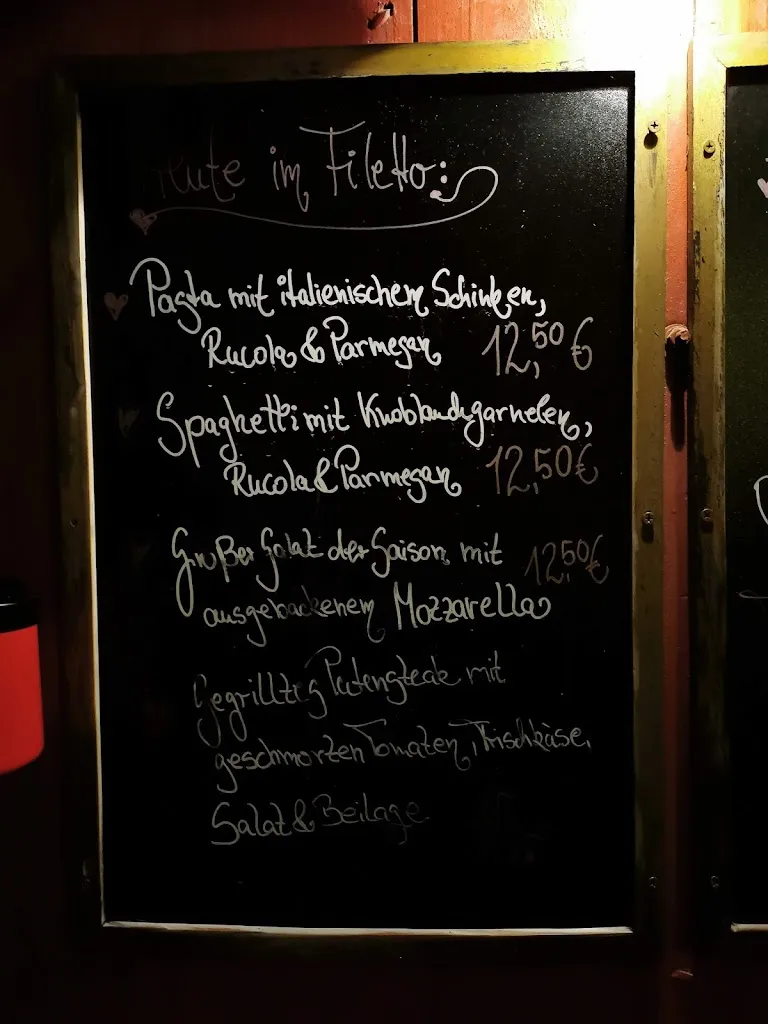 Heute im Filetto:
Pasta mit italienischem Schinken,
Rucola & Parmesan 12,50 €
Spaghetti mit Knoblauchgarnelen,
Rucola & Parmesan 12,50 €
Großer Salat der Saison mit 12,50 €
ausgebackenem Mozzarella
Gegrilltes Putensteak mit
geschmorten Tomaten, Frischkäse,
Salat & Beilage